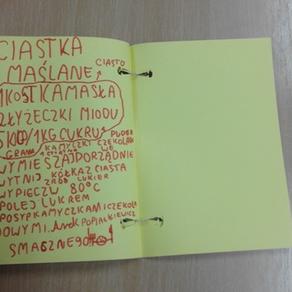 CIASTKA
MAŚLANE
CIASTO
1KOSTKAMASŁA
2ŁYŻECZKI MIODU
5100/1KG CUKRU
PUDER
GRAM KAMYCZKI CZEKOLAD
WYMIESZAJ PORZĄDNIE
WYTNIJ KÓŁKA Z CIASTA
ZRÓB LUKIER
WYPIECZ W 80°C
POLEJ LUKREM
POSYP KAMYCZKAMI CZEKOLA
DOWYMI.
SMACZNEGO